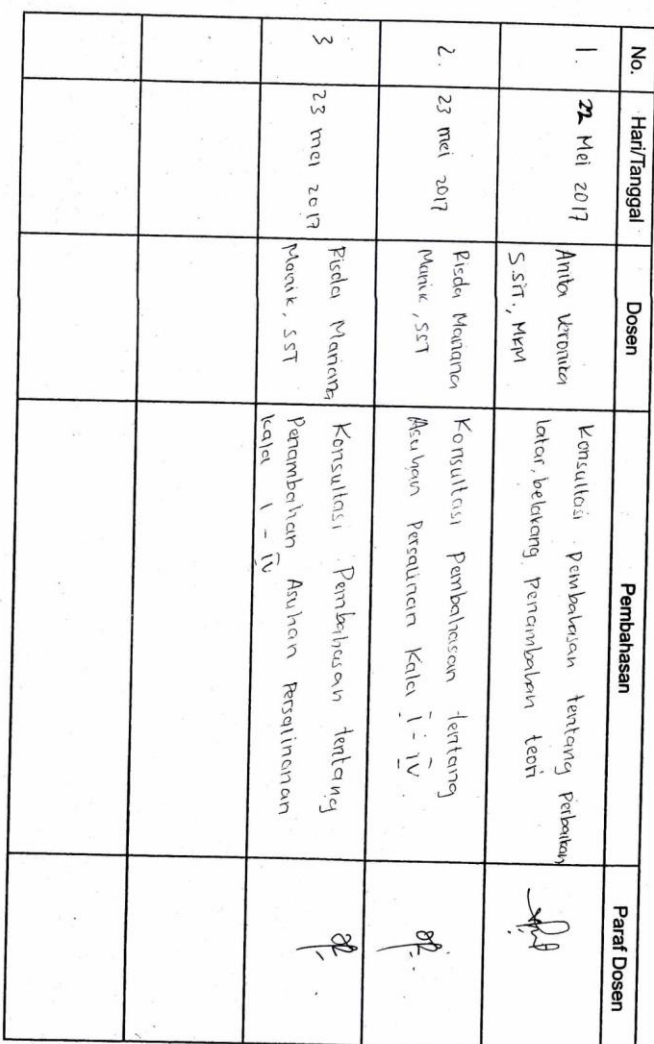 No. Hari/Tanggal Dosen Pembahasan Paraf Dosen
1. 22 Mei 2017 Anita Veronika Konsultasi pembahasan tentang Perbaikan
S.SiT., MKM latar, belakang penambahan teori
2. 23 mei 2017 Risda Mariana Konsultasi pembahasan tentang
Manik, SST Asuhan Persalinan Kala I - IV.
3 23 mei 2017 Risda Mariana Konsultasi Pembahasan tentang
Manik, SST Penambahan Asuhan Persalinanan
Kala I - IV